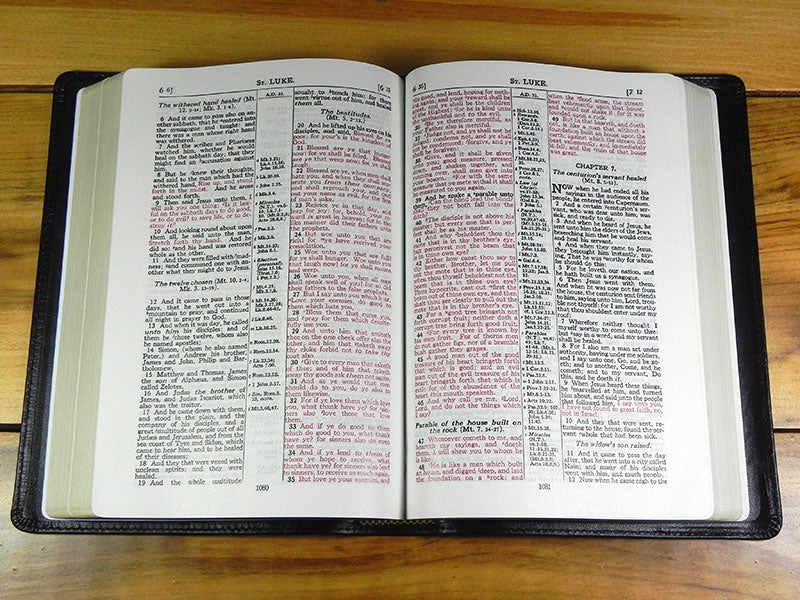 6 6]
ST. LUKE.
[6 35
The withered hand healed (Mt.
12. 9-14; Mk. 3. 1-6).
6 And it came to pass also on
another sabbath, that he entered into
the synagogue and taught: and
there was a man whose right hand
was withered.
7 And the scribes and Pharisees
watched him, whether he would
heal on the sabbath day; that they
might find an accusation against
him.
8 But he knew their thoughts,
and said to the man which had the
withered hand, Rise up, and stand
forth in the midst. And he arose
and stood forth.
9 Then said Jesus unto them, I
will ask you one thing; Is it lawful
on the sabbath days to do good,
or to do evil? to save life, or to destroy
it?
10 And looking round about upon
them all, he said unto the man,
Stretch forth thy hand. And he
did so: and his hand was restored
whole as the other.
11 And they were filled with madness;
and communed one with another
what they might do to Jesus.
The twelve chosen (Mt. 10. 2-4;
Mk. 3. 13-19).
12 And it came to pass in those
days, that he went out into a
mountain to pray, and continued
all night in prayer to God.
13 And when it was day, he called
unto him his disciples: and of
them he chose twelve, whom also
he named apostles;
14 Simon, (whom he also named
Peter,) and Andrew his brother,
James and John, Philip and Bartholomew,
15 Matthew and Thomas, James
the son of Alphæus, and Simon
called Zelotes,
16 And Judas the brother of
James, and Judas Iscariot, which
also was the traitor.
17 And he came down with them,
and stood in the plain, and the
company of his disciples, and a
great multitude of people out of all
Judæa and Jerusalem, and from the
sea coast of Tyre and Sidon, which
came to hear him, and to be healed
of their diseases;
18 And they that were vexed with
unclean spirits: and they were
healed.
19 And the whole multitude
A.D. 31.
sought to touch him: for there
went virtue out of him, and healed
them all.
The beatitudes
(Mt. 5. 2-12).
20 And he lifted up his eyes on his
disciples, and said, Blessed be ye
poor: for your's is the kingdom of
God.
21 Blessed are ye that hunger
now: for ye shall be filled. Blessed
are ye that weep now: for ye shall
laugh.
22 Blessed are ye, when men shall
hate you, and when they shall separate
you from their company,
and shall reproach you, and cast
out your name as evil, for the Son
of man's sake.
23 Rejoice ye in that day, and
leap for joy: for, behold, your reward
is great in heaven: for in the
like manner did their fathers unto
the prophets.
24 But woe unto you that are
rich! for ye have received your
consolation.
25 Woe unto you that are full!
for ye shall hunger. Woe unto you
that laugh now! for ye shall mourn
and weep.
26 Woe unto you, when all men
shall speak well of you! for so did
their fathers to the false prophets.
27 But I say unto you which hear,
Love your enemies, do good to
them which hate you,
28 Bless them that curse you,
and pray for them which despitefully
use you.
29 And unto him that smiteth
thee on the one cheek offer also the
other; and him that taketh away
thy cloke forbid not to take thy
coat also.
30 Give to every man that asketh
of thee; and of him that taketh
away thy goods ask them not again.
31 And as ye would that men
should do to you, do ye also to
them likewise.
32 For if ye love them which love
you, what thank have ye? for sinners
also love those that love
them.
33 And if ye do good to them
which do good to you, what thank
have ye? for sinners also do even
the same.
34 And if ye lend to them of
whom ye hope to receive, what
thank have ye? for sinners also lend
to sinners, to receive as much again.
35 But love ye your enemies, and
1080
6 36]
ST. LUKE.
[7 12
do good, and lend, hoping for nothing
again; and your reward shall be
great, and ye shall be the children
of the Highest: for he is kind unto
the unthankful and to the evil.
36 Be ye therefore merciful, as
your Father also is merciful.
37 Judge not, and ye shall not be
judged: condemn not, and ye shall
not be condemned: forgive, and ye
shall be forgiven:
38 Give, and it shall be given
unto you; good measure, pressed
down, and shaken together, and
running over, shall men give into
your bosom. For with the same
measure that ye mete withal it shall
be measured to you again.
39 And he spake a parable unto
them, Can the blind lead the blind?
shall they not both fall into the
ditch?
40 The disciple is not above his
master: but every one that is perfect
shall be as his master.
41 And why beholdest thou the
mote that is in thy brother's eye,
but perceivest not the beam that
is in thine own eye?
42 Either how canst thou say to
thy brother, Brother, let me pull
out the mote that is in thine eye,
when thou thyself beholdest not the
beam that is in thine own eye?
Thou hypocrite, cast out first the
beam out of thine own eye, and then
shalt thou see clearly to pull out the
mote that is in thy brother's eye.
43 For a good tree bringeth not
forth corrupt fruit; neither doth a
corrupt tree bring forth good fruit.
44 For every tree is known by
his own fruit. For of thorns men
do not gather figs, nor of a bramble
bush gather they grapes.
45 A good man out of the good
treasure of his heart bringeth forth
that which is good; and an evil
man out of the evil treasure of his
heart bringeth forth that which is
evil: for of the abundance of the
heart his mouth speaketh.
46 And why call ye me, Lord,
Lord, and do not the things which
I say?
Parable of the house built on
the rock (Mt. 7. 24-27).
47 Whosoever cometh to me, and
heareth my sayings, and doeth
them, I will shew you to whom he
is like:
48 He is like a man which built
an house, and digged deep, and laid
the foundation on a rock: and
A.D. 31.
when the flood arose, the stream
beat vehemently upon that house,
and could not shake it: for it was
founded upon a rock.
49 But he that heareth, and doeth
not, is like a man that without a
foundation built an house upon the
earth; against which the stream did
beat vehemently, and immediately
it fell; and the ruin of that house
was great.
CHAPTER 7.
The centurion's servant healed
(Mt. 8. 5-13).
NOW when he had ended all his
sayings in the audience of the
people, he entered into Capernaum.
2 And a certain centurion's servant,
who was dear unto him, was
sick, and ready to die.
3 And when he heard of Jesus, he
sent unto him the elders of the Jews,
beseeching him that he would come
and heal his servant.
4 And when they came to Jesus,
they besought him instantly, saying,
That he was worthy for whom
he should do this:
5 For he loveth our nation, and
he hath built us a synagogue.
6 Then Jesus went with them.
And when he was now not far from
the house, the centurion sent friends
to him, saying unto him, Lord, trouble
not thyself: for I am not worthy
that thou shouldest enter under my
roof:
7 Wherefore neither thought I
myself worthy to come unto thee:
but say in a word, and my servant
shall be healed.
8 For I also am a man set under
authority, having under me soldiers,
and I say unto one, Go, and he goeth;
and to another, Come, and he
cometh; and to my servant, Do
this, and he doeth it.
9 When Jesus heard these things,
he marvelled at him, and turned
him about, and said unto the people
that followed him, I say unto you,
I have not found so great faith, no,
not in Israel.
10 And they that were sent, returning
to the house, found the servant
whole that had been sick.
The widow's son raised.
11 And it came to pass the day
after, that he went into a city called
Nain; and many of his disciples
went with him, and much people.
12 Now when he came nigh to the
1081